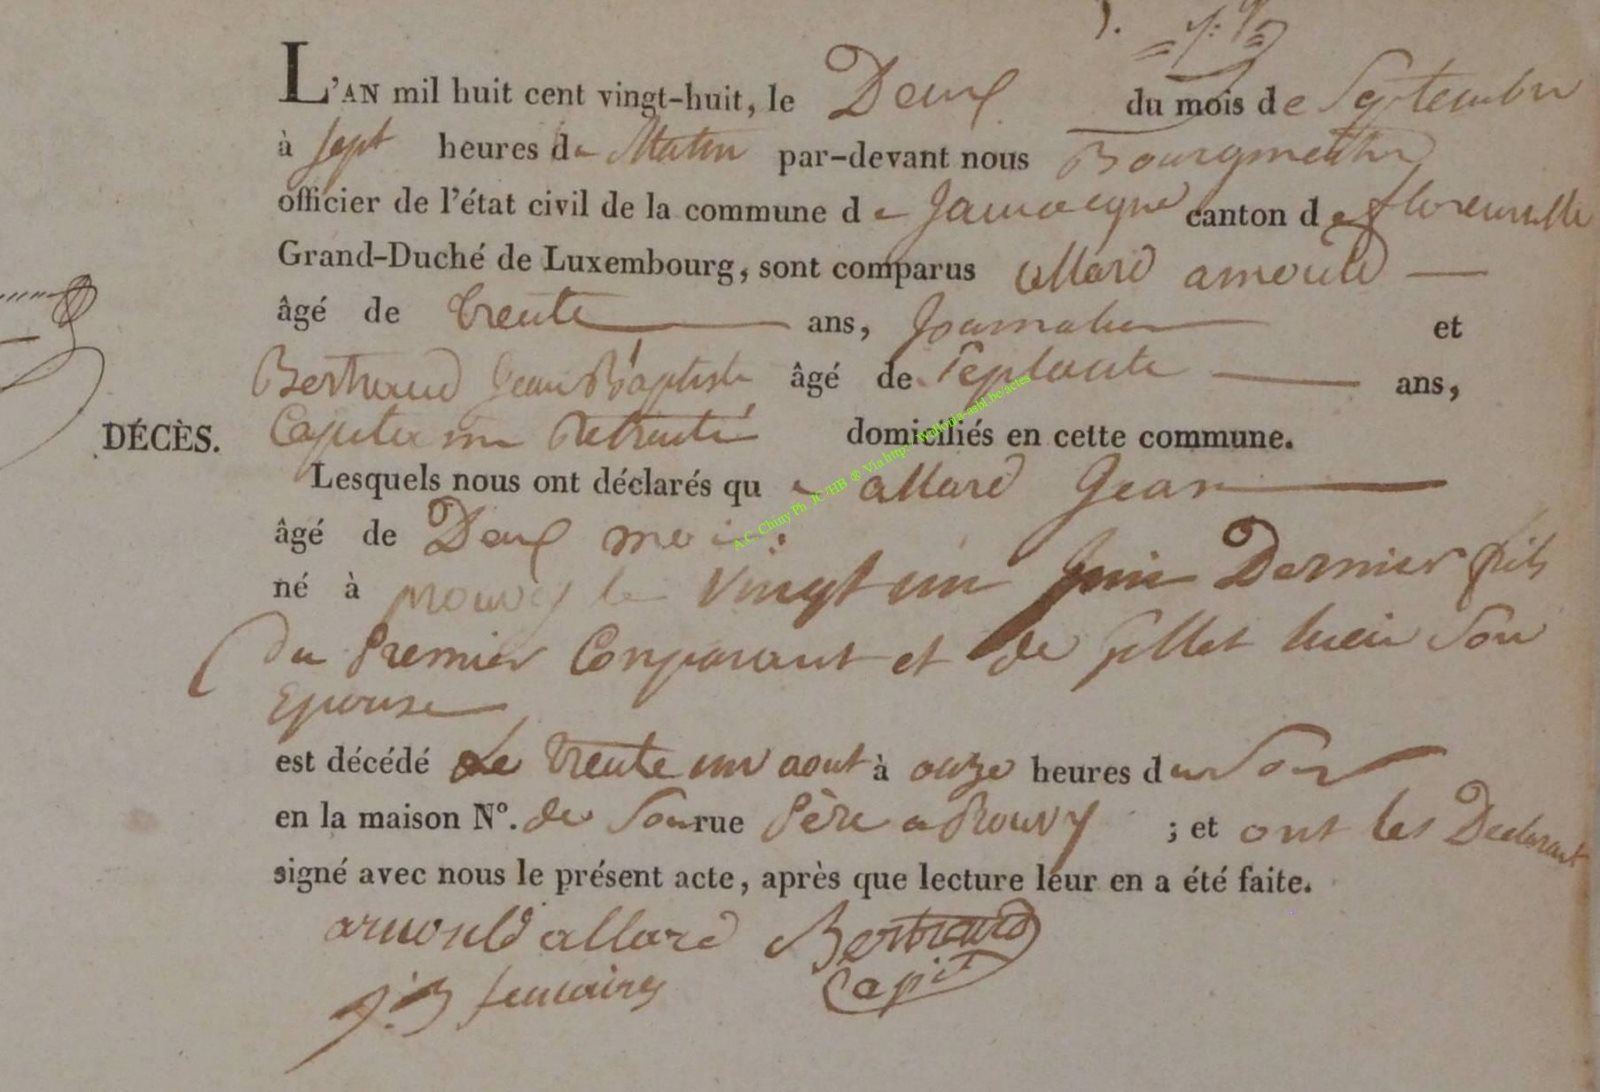 L'AN mil huit cent vingt-huit, le Deux du mois de Septembre
à Sept heures du Matin par-devant nous Bourgmestre
officier de l'état civil de la commune de Jamoigne canton de florenville
Grand-Duché de Luxembourg, sont comparus allard arnould
âgé de trente ans, Journalier et
Bertrand Jean Baptiste âgé de Septante ans,
Capitaine Retraité domiciliés en cette commune.
DÉCÈS.
Lesquels nous ont déclarés que allard Jean
âgé de Deux mois
né à prouvy le vingt un Juin Dernier fils
Du Premier Comparant et de Son
Epouse
est décédé Le trente un aout à onze heures du Soir
en la maison N°. de Son rue Père a Prouvy ; et ont les Declarant
signé avec nous le présent acte, après que lecture leur en a été faite.
arnould allard Bertrand
Capit
A.C. Chiny Ph. JC/HB ® Via